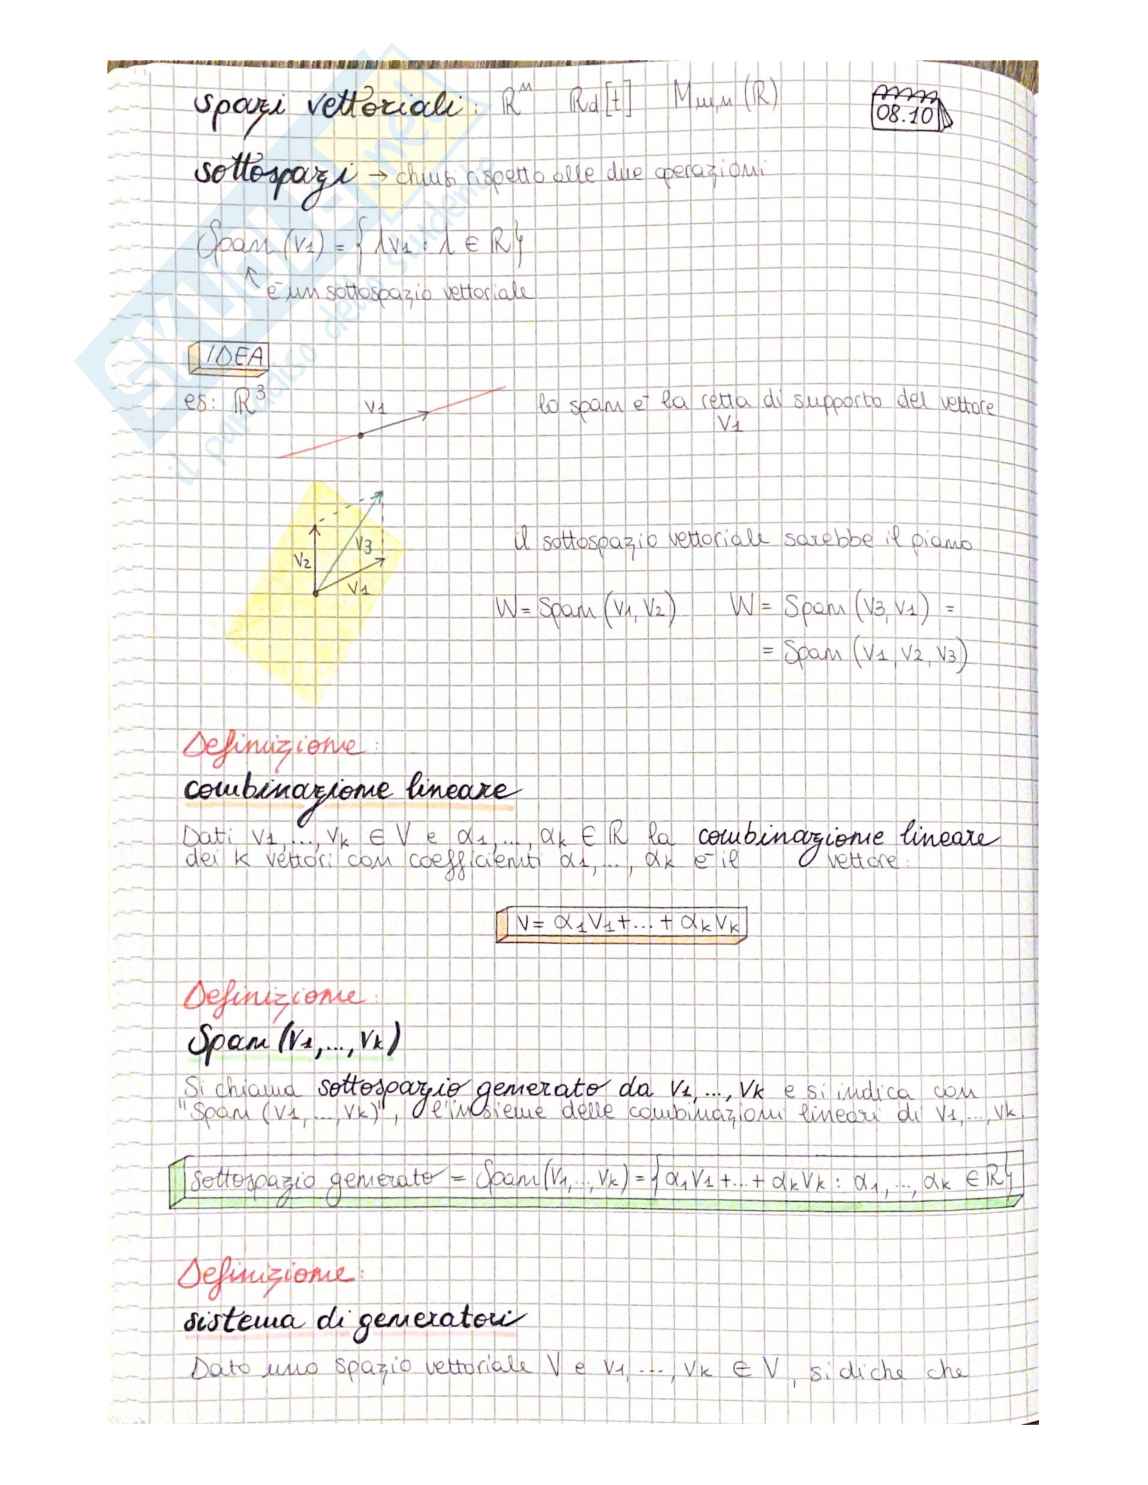 spazi vettoriali: ℝⁿ ℝd[t] Mm,n(ℝ)
08.10
sottospazi → chiusi rispetto alle due operazioni
Span (v1) = {λv1 : λ ∈ ℝ}
è un sottospazio vettoriale
IDEA
es: ℝ³
v1
lo span è la retta di supporto del vettore
v1
v2
v3
v1
il sottospazio vettoriale sarebbe il piano
W = Span (v1, v2) W = Span (v3, v1) =
= Span (v1, v2, v3)
Definizione:
combinazione lineare
Dati v1,..., vk ∈ V e α1,..., αk ∈ ℝ la combinazione lineare
dei k vettori con coefficienti α1,..., αk è il vettore:
v = α1v1 + ... + αkvk
Definizione:
Span (v1,..., vk)
Si chiama sottospazio generato da v1,..., vk e si indica con
"Span (v1,..., vk)", l'insieme delle combinazioni lineari di v1,..., vk
sottospazio generato = Span(v1,..., vk) = {α1v1 + ... + αkvk : α1,..., αk ∈ ℝ}
Definizione:
sistema di generatori
Dato uno spazio vettoriale V e v1,..., vk ∈ V, si diche che
SKUOLA.net
il paradiso dello studente